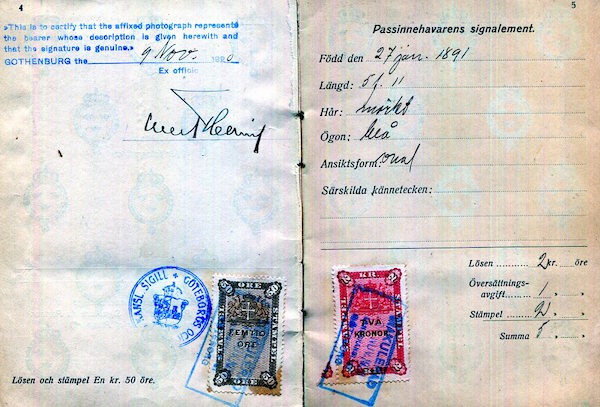 4
»This is to certify that the affixed photograph represents
the bearer whose description is given herewith and
that the signature is genuine.»
GOTHENBURG the 9 Nov. 1920
Ex officio
KANSL. SIGILL + GÖTEBORGS OCH
ÖRE
STÄMPEL
FEMTIO
ÖRE
50
ÖRE
Lösen och stämpel En kr. 50 öre.
5
Passinnehavarens signalement.
Född den 27 jan. 1891
Längd: 5 f. 11
Hår: mörkt
Ögon: blå
Ansiktsform: oval
Särskilda kännetecken:
Lösen 2 kr. öre
Översättnings-
avgift 1 » »
Stämpel 2 » »
Summa 5 » »
KR
STÄMPEL
TVÅ
KRONOR
MAKULERAD